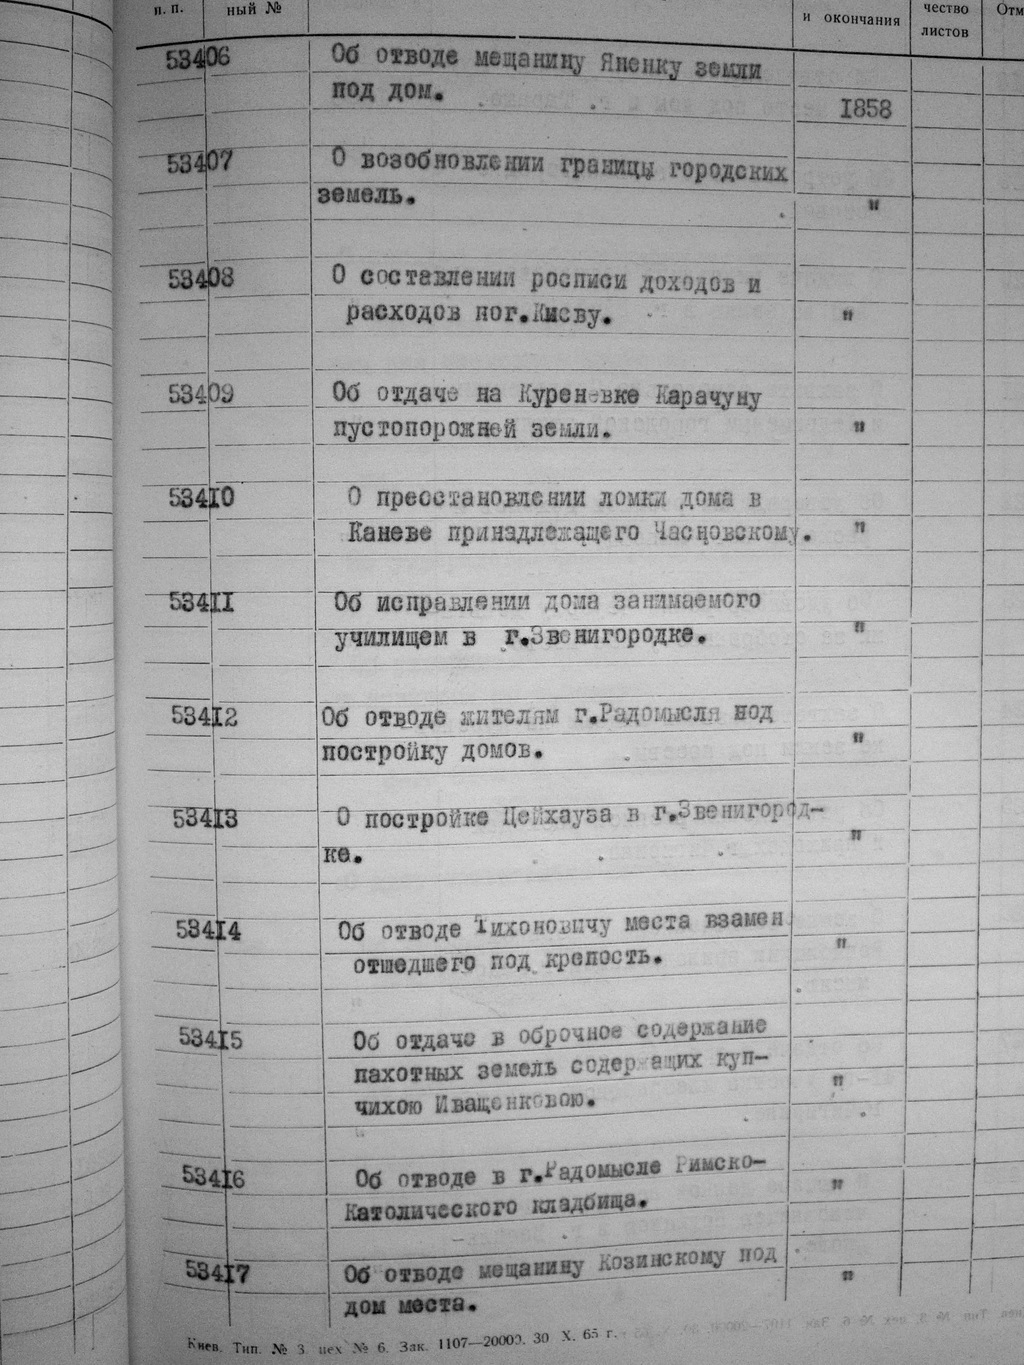 п. п. ный № и окончания чество листов Отм
53406 Об отводе мещанину Яненку земли
под дом. 1858
53407 О возобновлении границы городских
земель. "
53408 О составлении росписи доходов и
расходов пог.Киеву. "
53409 Об отдаче на Куреневке Карачуну
пустопорожней земли. "
53410 О преостановлении ломки дома в
Каневе принадлежащего Часновскому. "
53411 Об исправлении дома занимаемого
училищем в г.Звенигородке. "
53412 Об отводе жителям г.Радомысля под
постройку домов. "
53413 О постройке Цейхауза в г.Звенигород-
ке. "
53414 Об отводе Тихоновичу места взамен
отшедшего под крепость. "
53415 Об отдаче в оброчное содержание
пахотных земель содержащих куп-
чихою Иващенковою. "
53416 Об отводе в г.Радомысле Римско-
Католического кладбища. "
53417 Об отводе мещанину Козинскому под
дом места. "
Киев. Тип. № 3 цех № 6. Зак. 1107—20000. 30 X. 65 г.